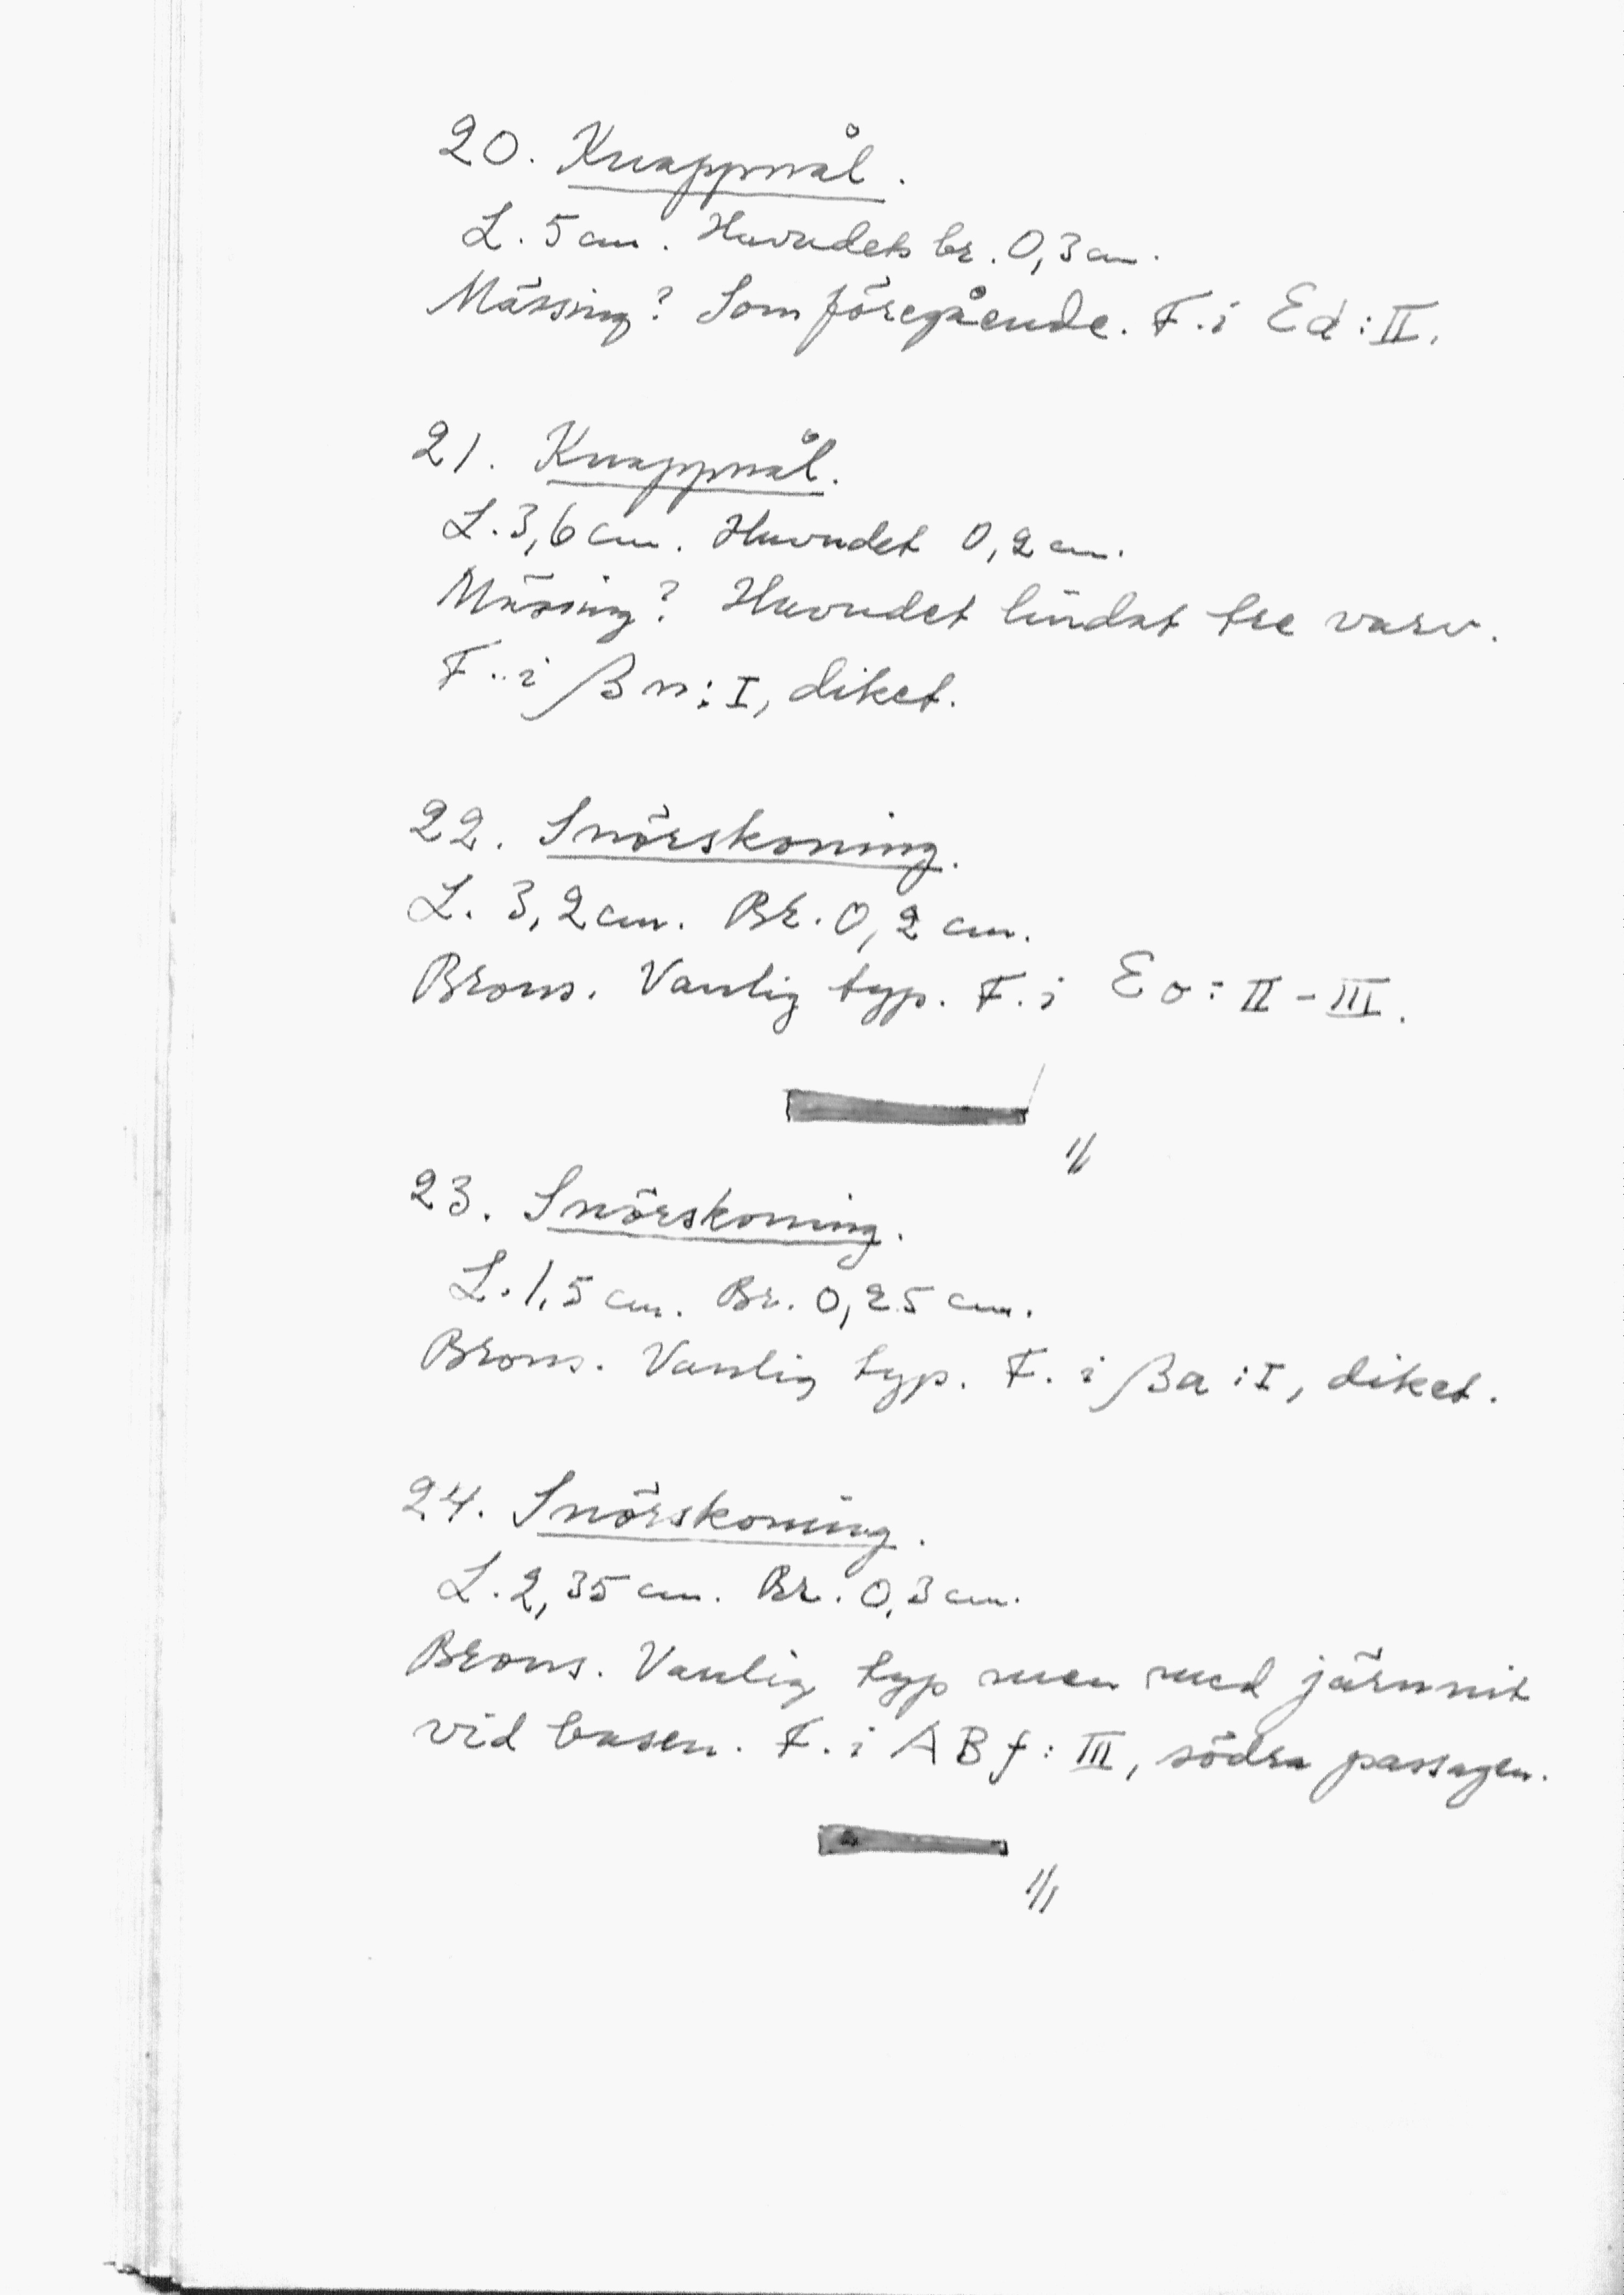 20. Knappnål.
L. 5 cm. Huvudets br. 0,3 cm.
Mässing? Som föregående. F. i Ed: II.
21. Knappnål.
L. 3,6 cm. Huvudet 0,2 cm.
Mässing? Huvudet lindat tre varv.
F. i βn: I, diket.
22. Snörskoning.
L. 3,2 cm. Br. 0,2 cm.
Brons. Vanlig typ. F. i Eo: II - III.
1/1
23. Snörskoning.
L. 1,5 cm. Br. 0,25 cm.
Brons. Vanlig typ. F. i βa: I, diket.
24. Snörskoning.
L. 2,35 cm. Br. 0,3 cm.
Brons. Vanlig typ men med järnnit
vid basen. F. i ABf: III, södra passagen.
1/1